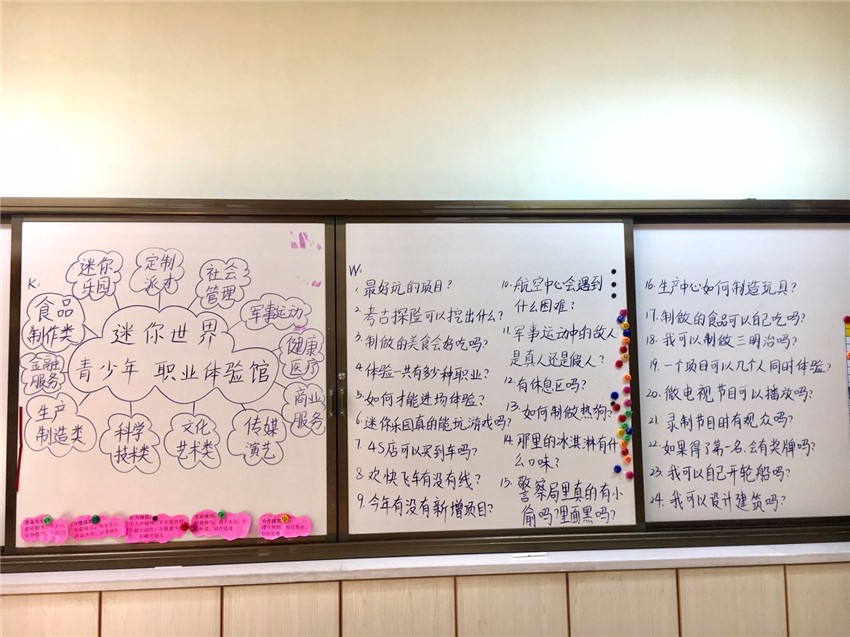 K:
迷你
乐园
定制
派对
社会
管理
军事运动
食品
制作类
迷你世界
青少年 职业体验馆
健康
医疗
金融
服务
商业
服务
生产
制造类
科学
技术类
文化
艺术类
传媒
演艺
W:
1. 最好玩的项目?
2. 考古探险可以挖出什么?
3. 制做的美食会好吃吗?
4. 体验一共有多少种职业?
5. 如何才能进场体验?
6. 迷你乐园真的能玩游戏吗?
7. 4S店可以买到车吗?
8. 欢快飞车有没有线?
9. 今年有没有新增项目?
10. 航空中心会遇到
什么困难?
11. 军事运动中的敌人
是真人还是假人?
12. 有休息区吗?
13. 如何制做热狗?
14. 那里的冰淇淋有什
么口味?
15. 警察局里真的有小
偷吗?里面黑吗?
16. 生产中心如何制造玩具?
17. 制做的食品可以自己吃吗?
18. 我可以制做三明治吗?
19. 一个项目可以几个人同时体验?
20. 微电视节目可以播放吗?
21. 录制节目时有观众吗?
22. 如果得了第一名,会有奖牌吗?
23. 我可以自己开轮船吗?
24. 我可以设计建筑吗?